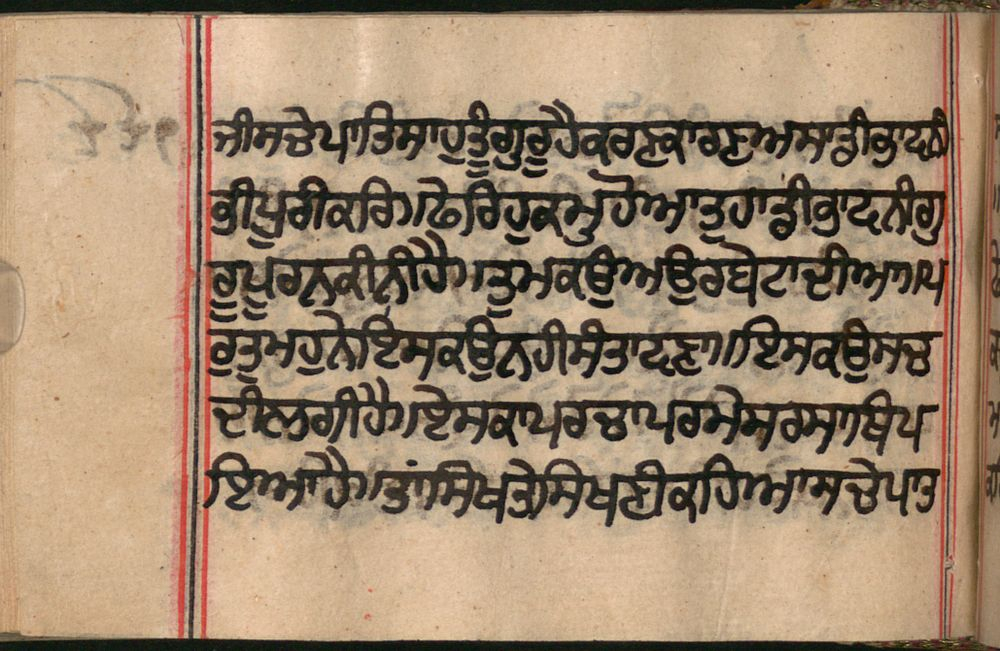 ਜੀਸਚੇਪਾਤਿਸਾਹੁਤੂੰਗੁਰੂਹੈਕਰਣਕਾਰਣਅਸਾਡੀਭਾਵਨੀ
ਭੀਪੂਰੀਕਰਿ॥ਫੇਰਿਹੁਕਮੁਹੋਆਤੁਹਾਡੀਭਾਵਨੀਗੁ
ਰੂਪੂਰਨਕੀਨੀਹੈ॥ਤੁਮਕਉਅਉਰਬੇਟਾਦੀਆ॥ਪ
ਰੁਤੁਮਹੁਨੇਇਸਕਉਨਹੀਸੰਤਾਵਣਾ॥ਇਸਕਉਸਚ
ਦੀਲਗੀਹੈ॥ਏਸਕਾਪਰਚਾਪਰਮੇਸਰਸਾਥਿਪ
ਇਆਹੈ॥ਤਾਂਸਿਖਤੇਸਿਖਣੀਕਹਿਆਸਚੇਪਾਤ